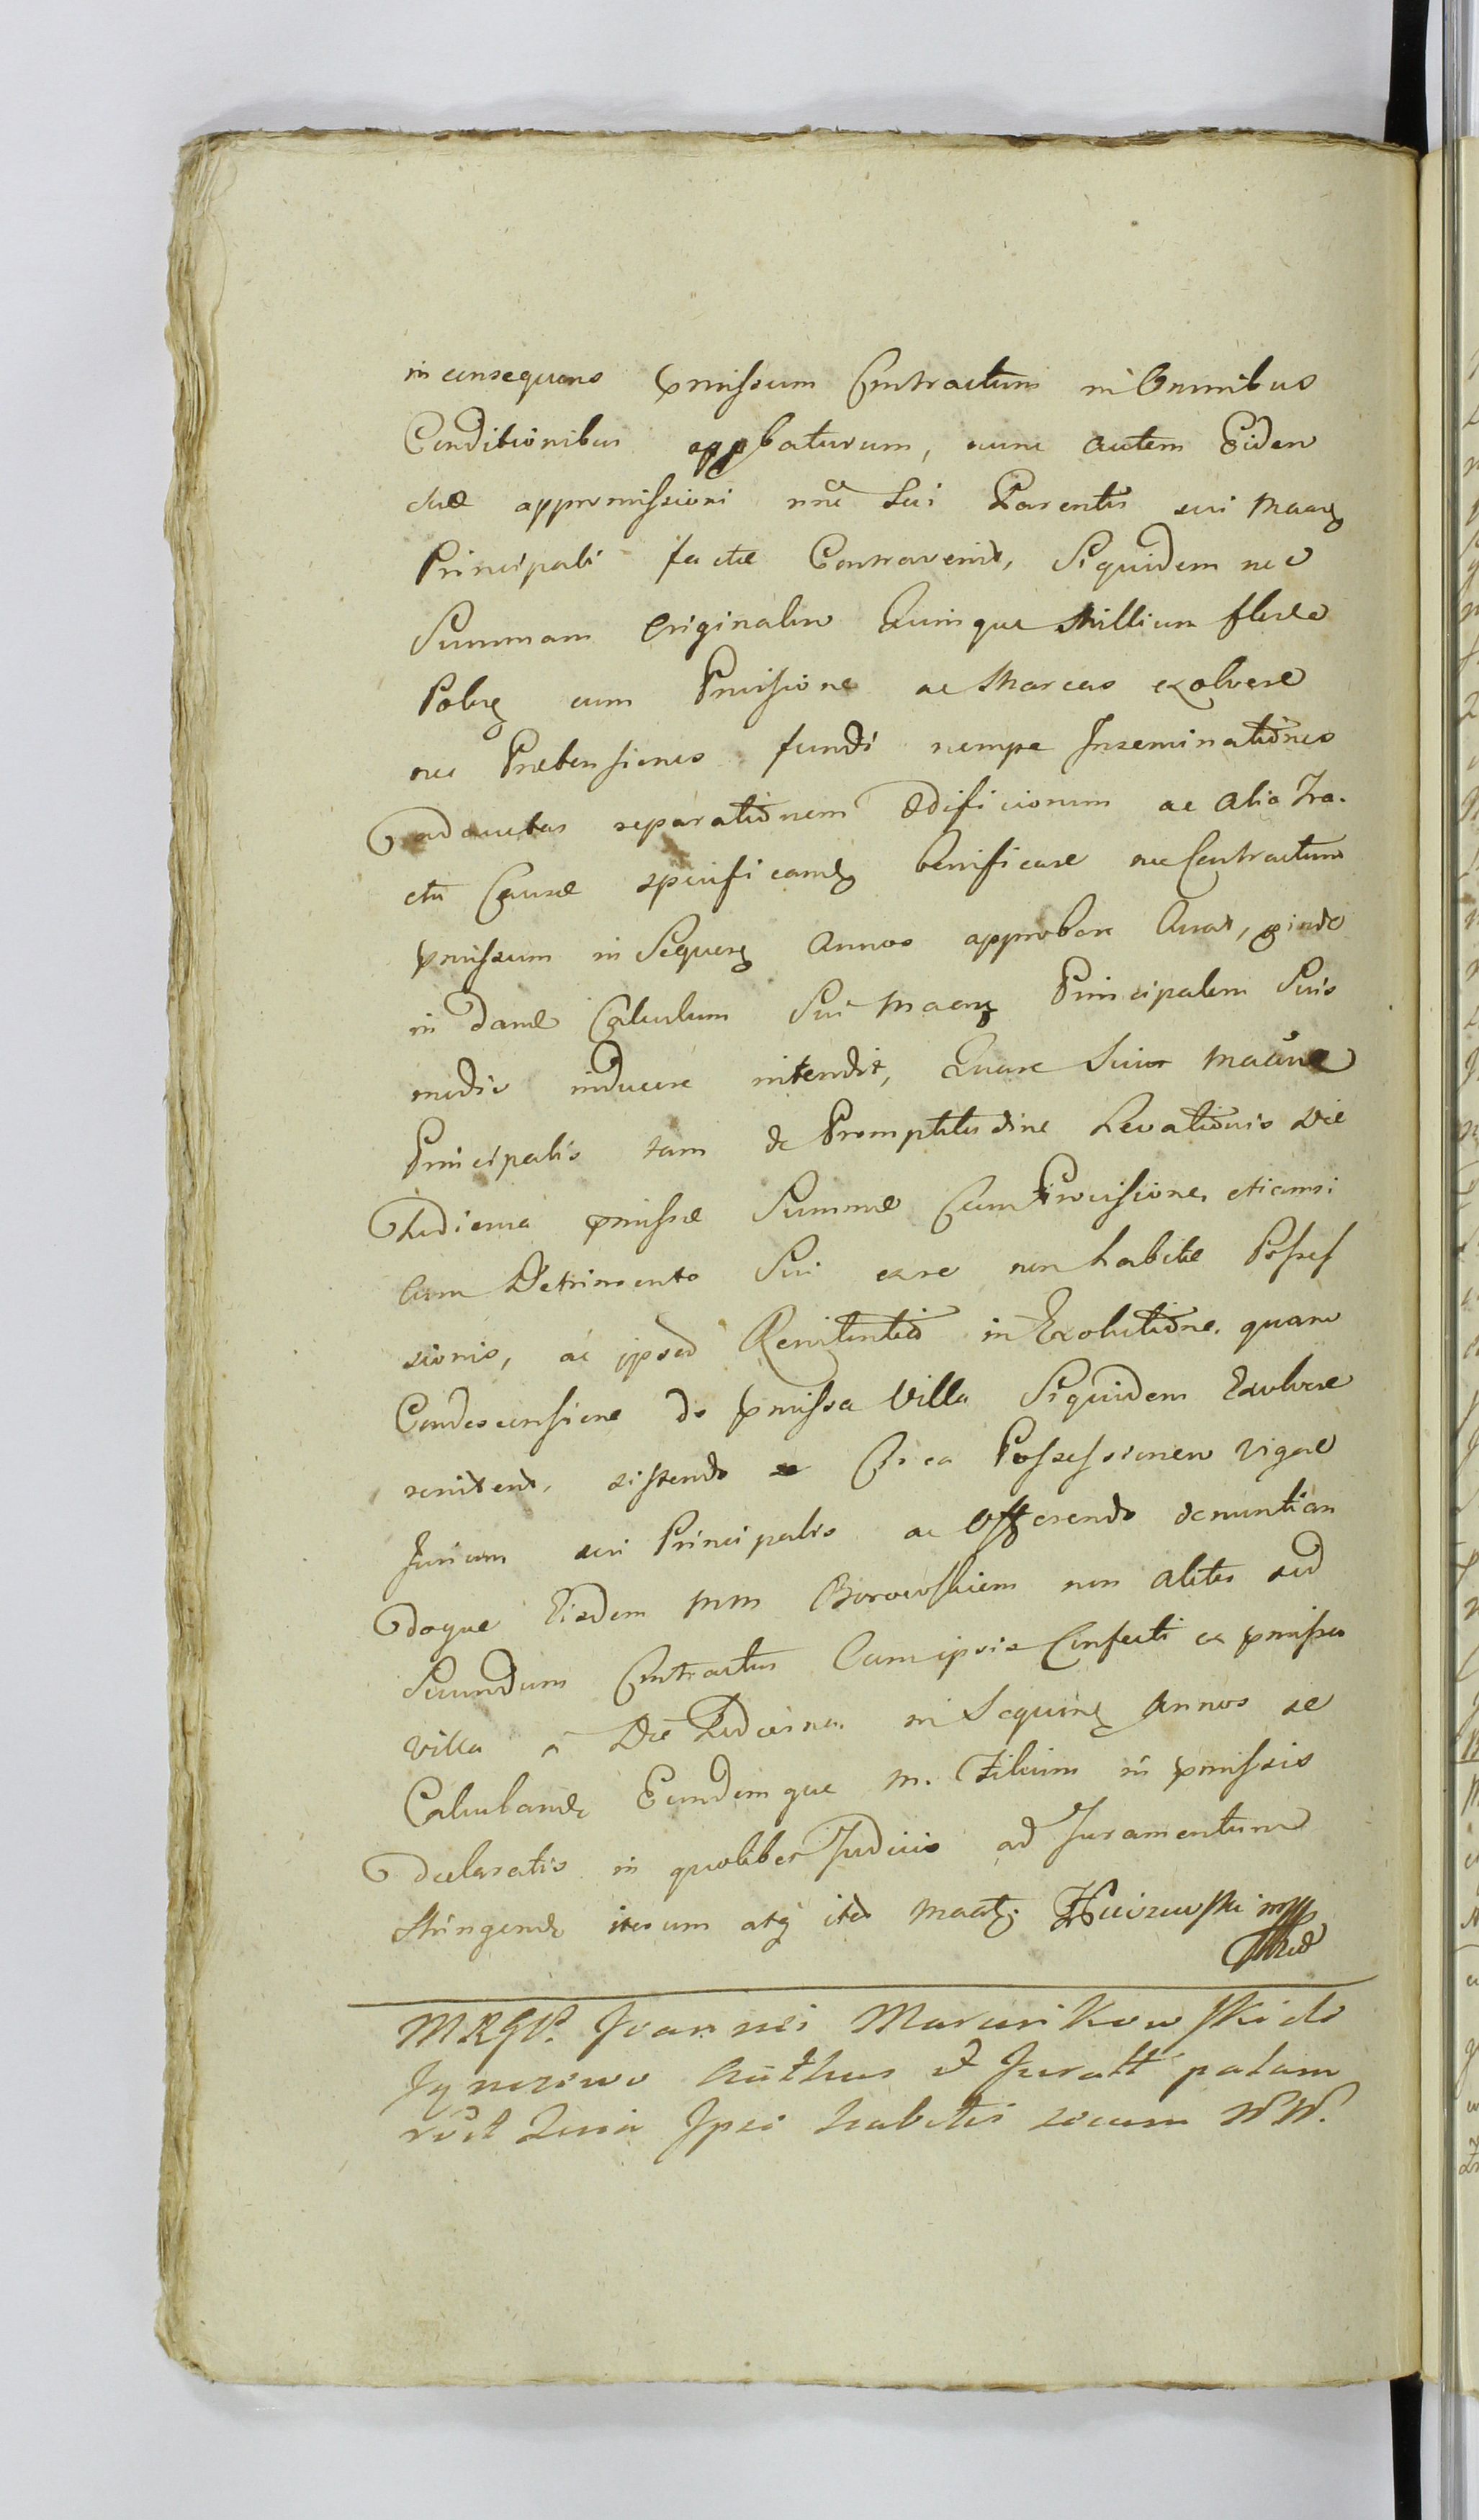 in conseqvens pmissum Contractum in Omnibus
Conditionibus appbaturum, nunc autem Eidem
suæ appromissioni nnē Sui Parentis sui Maag
Principali factæ Contravenit, Siquidem nec
Summam Originalem Quinque Millium flor
Polnz cum Provisione ac Marcas exolvere
nec Prætensiones fundi nempe Inseminationes
adauctas reparationem Ædificiorum ac alia Tra.
ctu Causæ specificand bonificare nec Contractum
pmissum in Sequen Annos approbare Curat, proinde
in Damnē Calculum Sui Maag Principalem Suis
modis inducere intendit, Quare Suus Maane
Principalis tam de Promptitudine Levationis Die
Hodierna pmissæ Summæ Cum Provisione, etiamsi
Cum Detrimento Sui ex re non habitæ Posses
sionis, ac ipsa Renitentia in Exolutione, quam
Condescensione de pmissa Villa Siquidem Exolvere
renitent, sistendo Circa Possessionem vigore
Jurium sui Principalis ac Offerendo denuntian
doque Eisdem MM Borowskiem non aliter sed
Secundum Contractus Cum ipsis Confecti ex pmissa
Villa a Die Hodierna in Sequen Annos se
Calculand Eundemque M. Filium in pmissis
declaratis in quolibet Judicio ad Juramentum
stringend iterum atq iter Maat. mpp

MRGP. Joannes Marcinkowski de
authus et Juratt palam
rēcit Quia Ipse habitis secum NN.